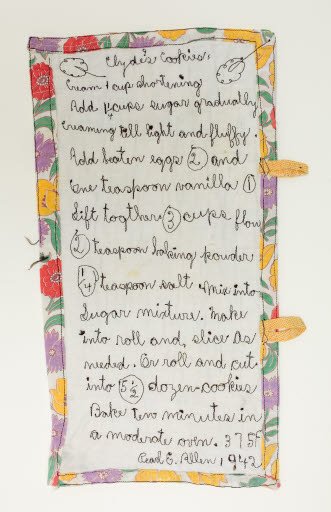 Clyde's Cookies:
Cream 1 cup shortening
Add cups sugar gradually
Creaming till light and fluffy.
Add beaten eggs 2 and
one teaspoon vanilla 1
Sift togther 3 cups
2 teaspoon baking powder
1/4 teaspoon salt. Mix into
Sugar mixture. Make
into roll and, slice As
needed. Or roll and cut
into 5 1/2 dozen-cookies
Bake ten minutes in
a moderate oven. 375F
Pearl E. Allen 1942